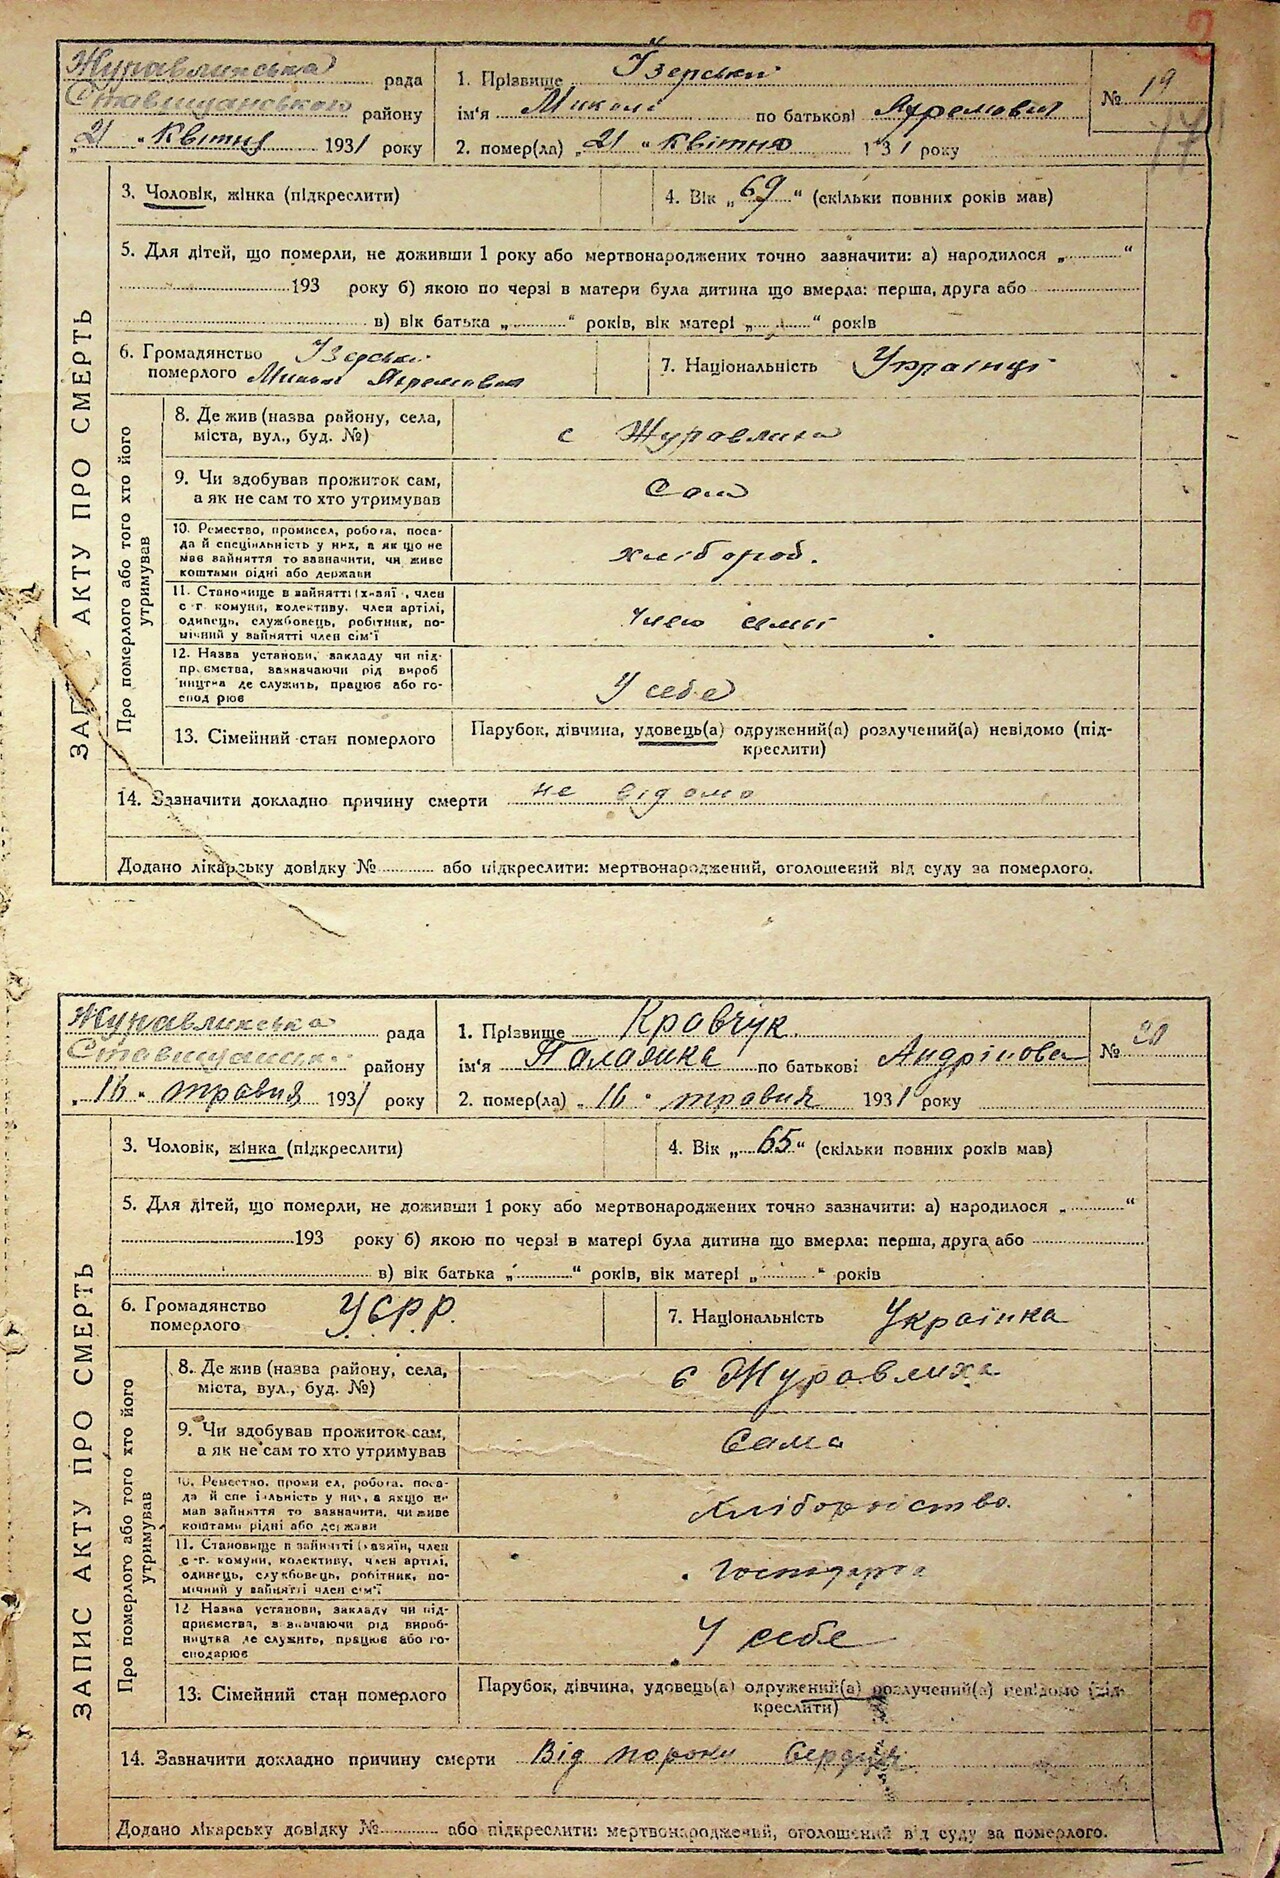 2
Журавлиська рада
Ставищанського району
„21 " квітня 1931 року
1. Прізвище Їзерський
ім'я Микола по батькові Яхремович
2. помер(ла) „21 " квітня 1931 року
№ 19
ЗАПИС АКТУ ПРО СМЕРТЬ
3. Чоловік, жінка (підкреслити)
4. Вік „69" (скільки повних років мав)
5. Для дітей, що померли, не доживши 1 року або мертвонароджених точно зазначити: а) народилося „ "
193 року б) якою по черзі в матери була дитина що вмерла: перша, друга або
в) вік батька „ " років, вік матері „ " років
6. Громадянство Їзерські
померлого Микола Яхремович
7. Національність Українці
Про померлого або того хто його
утримував
8. Де жив (назва району, села,
міста, вул., буд. №)
с Журавлиха
9. Чи здобував прожиток сам,
а як не сам то хто утримував
Сам
10. Ремество, промисел, робота, поса-
да й спеціяльність у них, а як що не
мав зайняття то зазначити, чи живе
коштами рідні або держави
хлібороб.
11. Становище в зайнятті (хазяї , член
с-г. комуни, колективу, член артілі,
одинець, службовець, робітник, по-
мічний у зайнятті член сім'ї
член семї
12. Назва установи, закладу чи під-
приємства, зазначаючи рід вироб
ництва де служить, працює або го-
спод рює
У себе
13. Сімейний стан померлого
Парубок, дівчина, удовець(а) одружений(а) розлучений(а) невідомо (під-
креслити)
14. Зазначити докладно причину смерти не відомо
Додано лікарську довідку № або підкреслити: мертвонароджений, оголошений від суду за померлого.
Журавлиська рада
Ставищанськ. району
„16 " травня 1931 року
1. Прізвище Кравчук
ім'я Палажка по батькові Андріпова
2. помер(ла) „16 " травня 1931 року
№ 20
ЗАПИС АКТУ ПРО СМЕРТЬ
3. Чоловік, жінка (підкреслити)
4. Вік „65" (скільки повних років мав)
5. Для дітей, що померли, не доживши 1 року або мертвонароджених точно зазначити: а) народилося „ "
193 року б) якою по черзі в матері була дитина що вмерла: перша, друга або
в) вік батька „ " років, вік матері „ " років
6. Громадянство
померлого
УСРР.
7. Національність Українка
Про померлого або того хто його
утримував
8. Де жив (назва району, села,
міста, вул., буд. №)
с Журавлиха
9. Чи здобував прожиток сам,
а як не сам то хто утримував
Сама
10. Ремество, проми ел, робота, поса-
да й спе іяльність у них, а якщо не
мав зайняття то зазначити, чи живе
коштами рідні або держави
хліборобство.
11. Становище в зайнятті (хазяїн, член
с-г. комуни, колективу, член артілі,
одинець, службовець, робітник, по-
мічний у зайнятті член сім'ї
господарка
12 Назва установи, закладу чи під-
приємства, зазначаючи рід вироб-
ництва де служить, працює або го-
сподарює
У себе
13. Сімейний стан померлого
Парубок, дівчина, удовець(а) одружений(а) розлучений(а) невідомо (під-
креслити)
14. Зазначити докладно причину смерти Від пороки сердця
Додано лікарську довідку № або підкреслити: мертвонароджений, оголошений від суду за померлого.